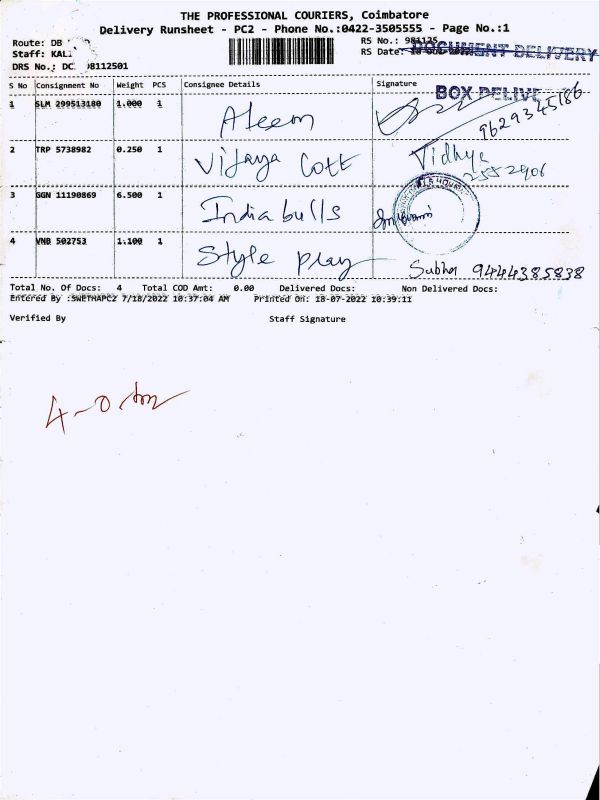 THE PROFESSIONAL COURIERS, Coimbatore
Delivery Runsheet - PC2 - Phone No.:0422-3505555 - Page No.:1
Route: DB
Staff: KAL
DRS No.: DC 98112501
RS No.: 981125
RS Date:
DOCUMENT DELIVERY
S No Consignment No Weight PCS Consignee Details Signature
BOX DELIVE
1 SLM 299513180 1.000 1 Aleem 9629345186
2 TRP 5738982 0.250 1 Vijaya Cott Vidhya
2552906
3 GGN 11190869 6.500 1 India bulls
4 VNB 502753 1.100 1 Style play Subha 9444385838
Total No. Of Docs: 4 Total COD Amt: 0.00 Delivered Docs: Non Delivered Docs:
Entered By :SWETHAPC2 7/18/2022 10:37:04 AM Printed On: 18-07-2022 10:39:11
Verified By Staff Signature